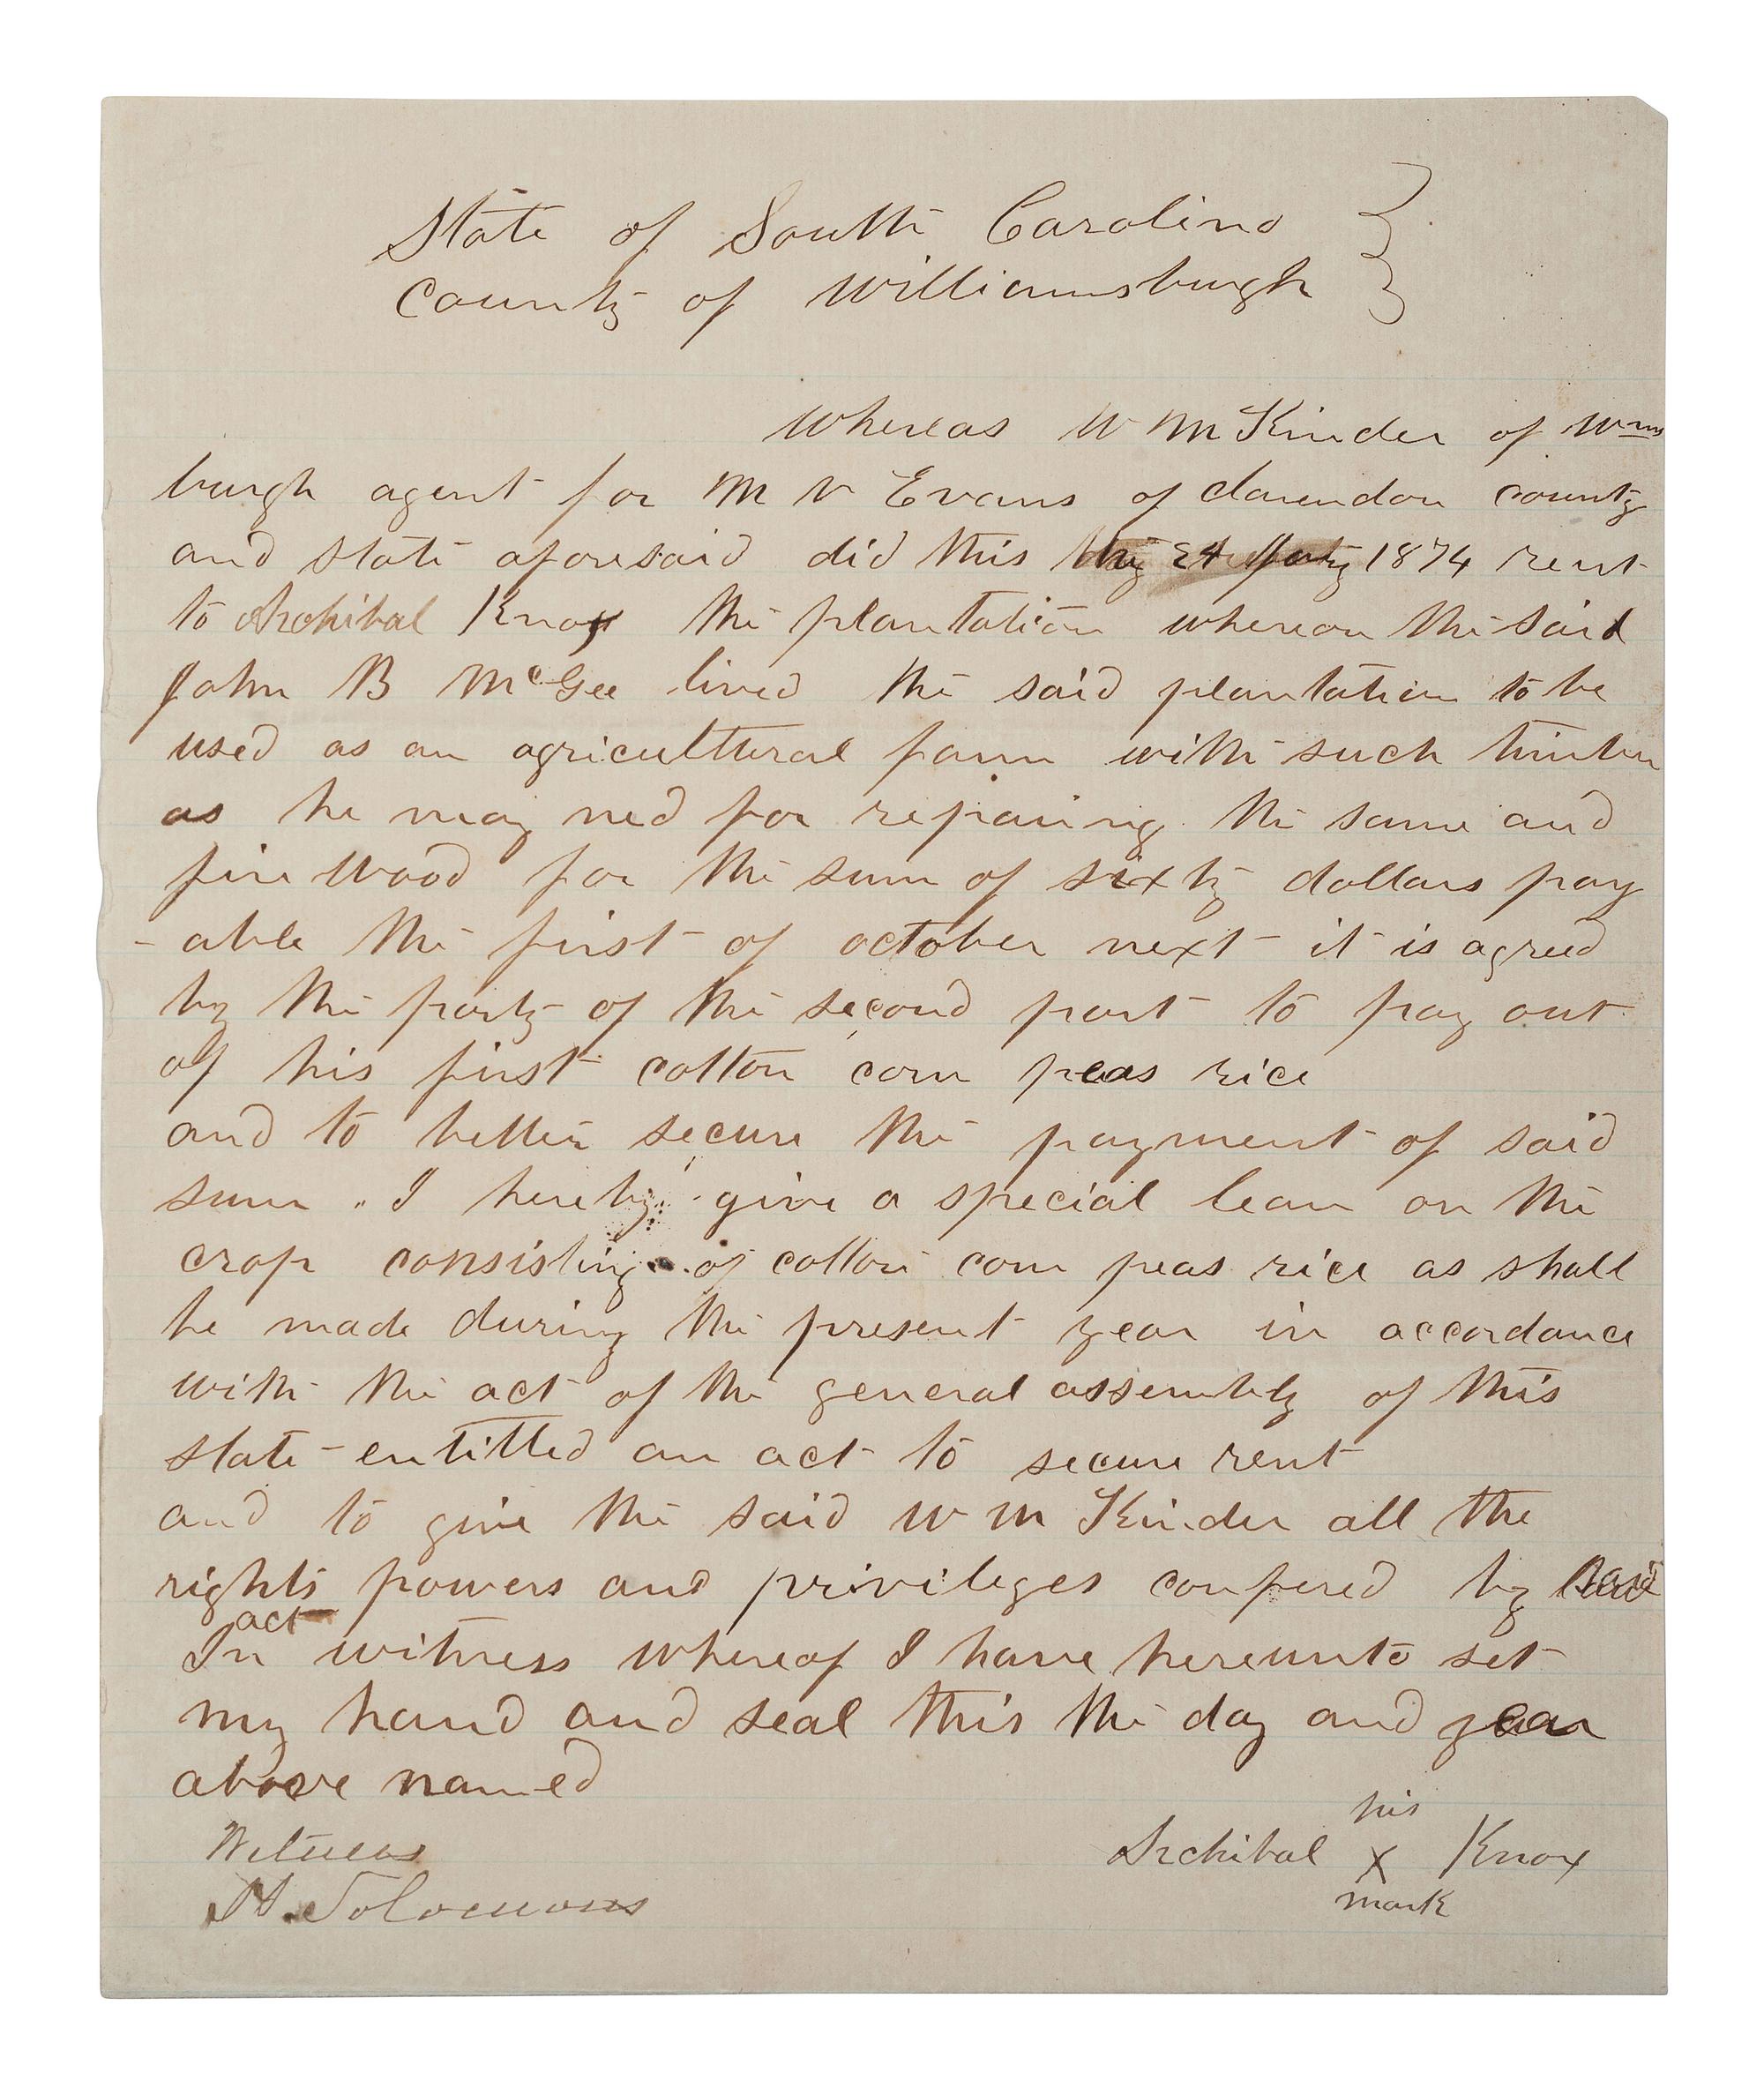 State of South Carolina }
County of Williamsburgh }
Whereas W M Kinder of Wms
burgh agent for M V Evans of clarendon county
and state aforesaid did this 24 1874 rent
to Archibal Knox the plantation whereon the said
John B McGee lived the said plantation to be
used as an agricultteral farm with such timber
as he may ned for repairing the same and
fire wood for the sum of sixty dollars pay
-able the first of october next it is agreed
by the party of the second part to pay out
of his first cotton corn peas rice
and to better secure the payment of said
sum I hereby give a special lean on the
crop consisting of cotton corn peas rice as shall
be made during the present year in accordance
with the act of the general assembly of this
state entitled an act to secure rent
and to give the said W M Kinder all the
rights powers and privileges confered by said
act
In witness whereof I have hereunto set
my hand and seal this the day and year
above named
his
Witness
Archibal X Knox
mark
H. Solomons